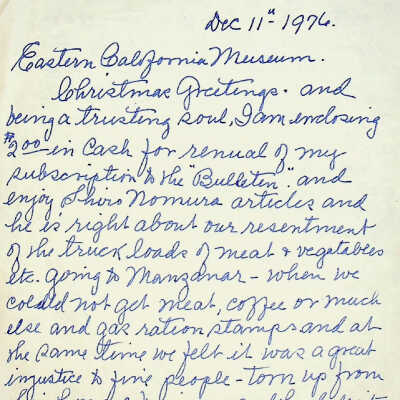 Dec 11" 1976.
Eastern California Museum.
Christmas Greetings. and
being a trusting soul, I am enclosing
$2.00 in cash for renual of my
subscription to the "Bulleten". and
enjoy Shiro Nomura articles and
he is right about our resentment
of the truck loads of meat & vegetables
etc. going to Manzanar - when we
could not get meat, coffee or much
else and gas ration stamps and at
the same time we felt it was a great
injustice to fine people - torn up from